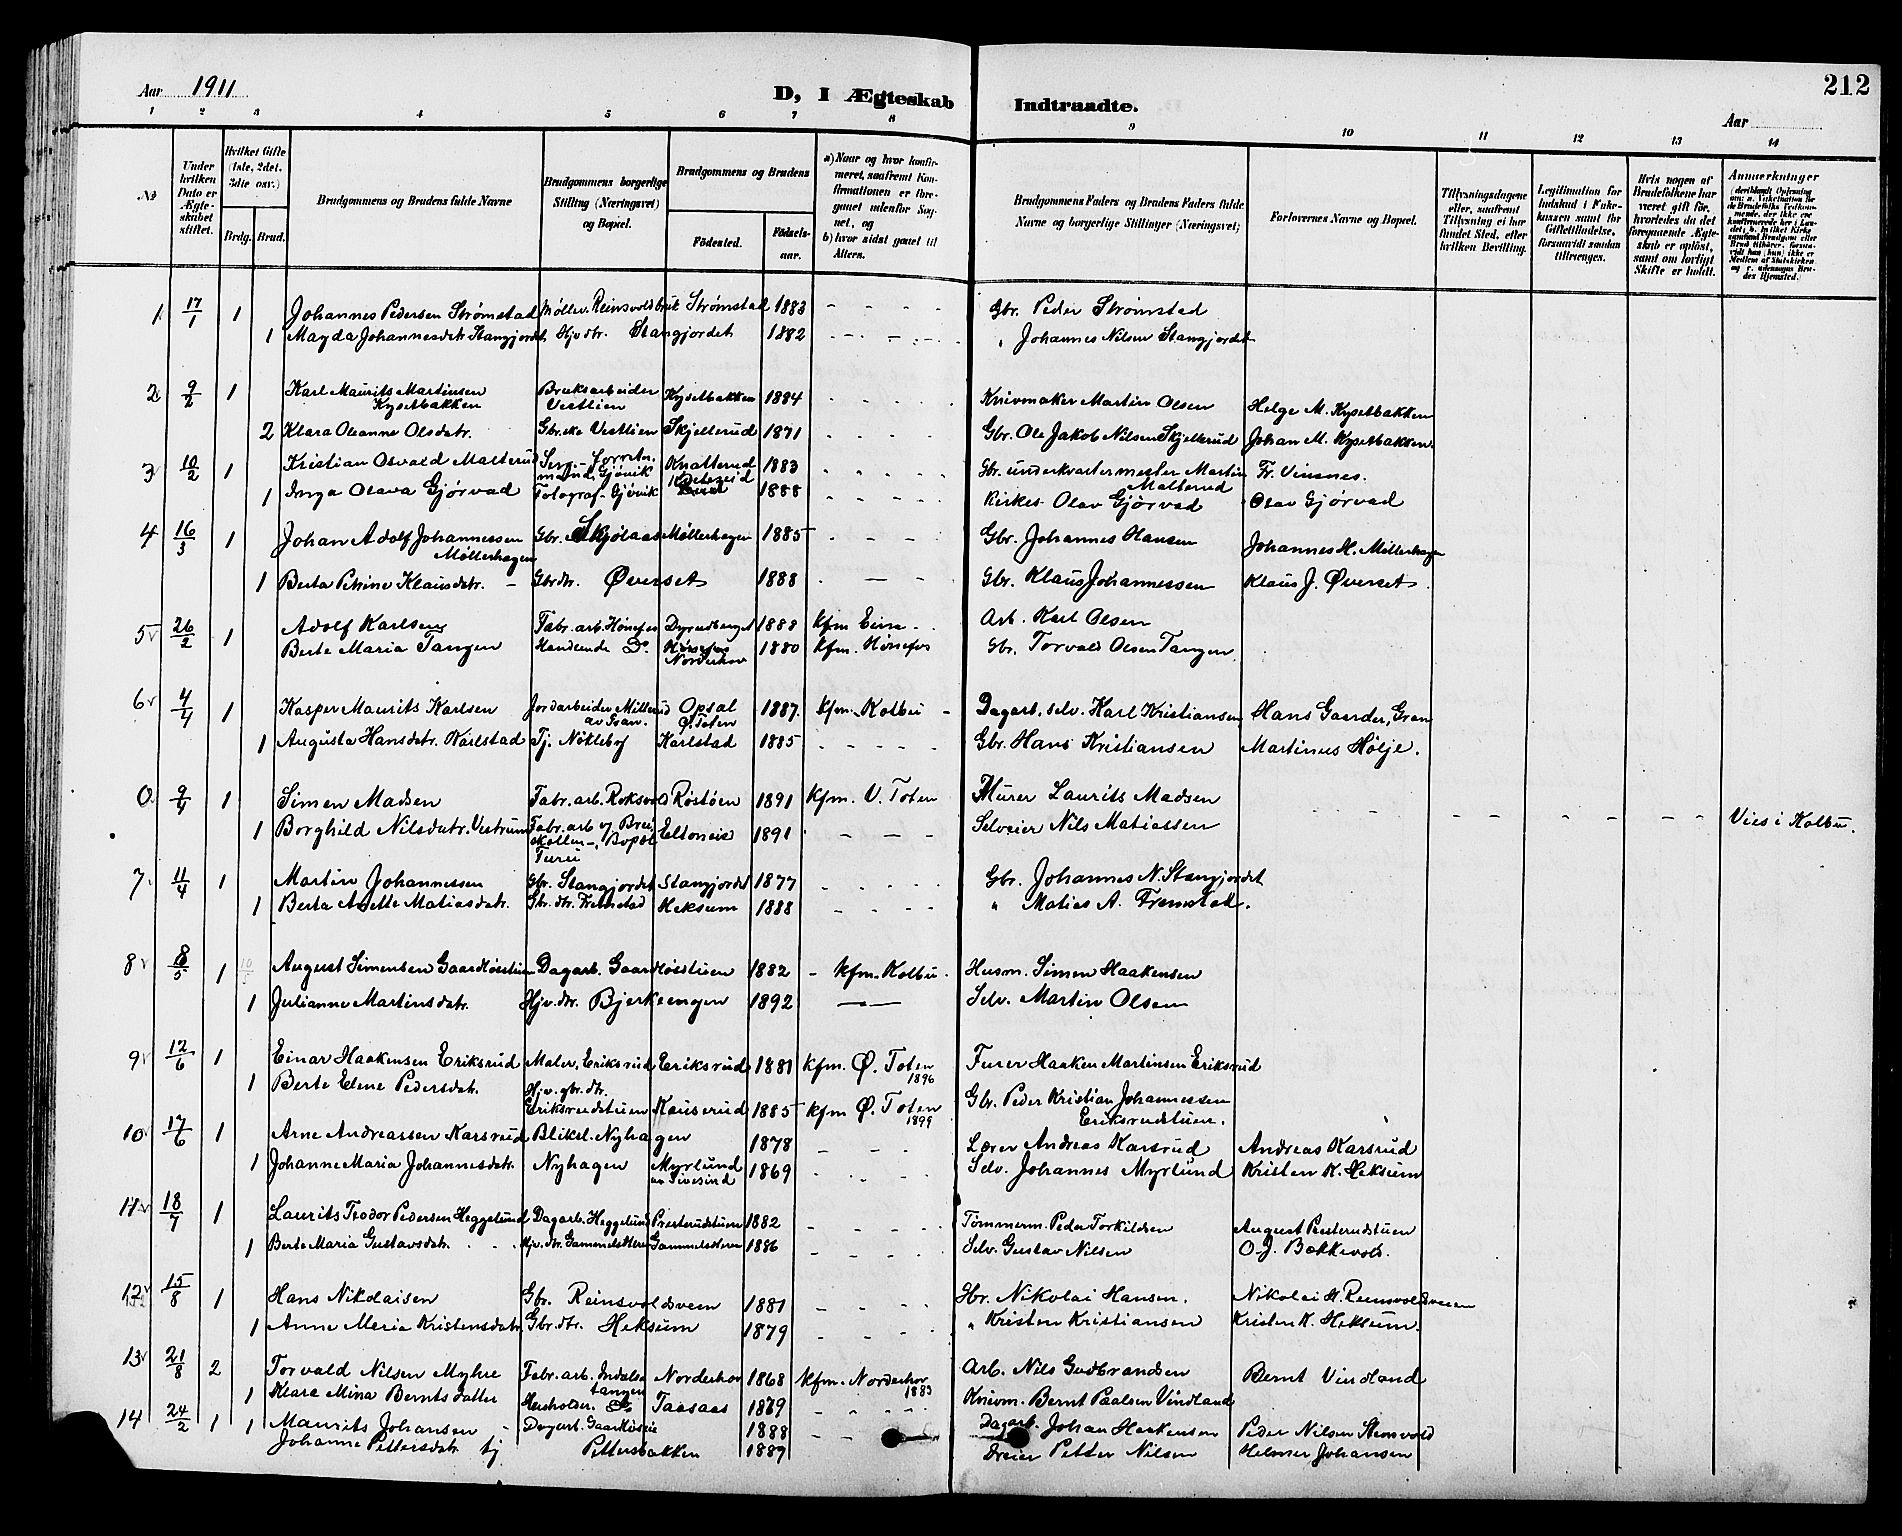 Aar 1911
D, I Ægteskab Indtraadte.
212
Aar
1 2 3 4 5 6 7 8 9 10 11 12 13 14
No
Under hvilken Dato er Ægteskabet stiftet.
Hvilket Gifte (1ste, 2det, 3die osv.)
Brdg. Brud.
Brudgommens og Brudens fulde Navne
Brudgommens borgerlige Stilling (Næringsvei) og Bopæl.
Brudgommens og Brudens
Fødested. Fødselsaar.
a) Naar og hvor konfirmeret, saafremt Konfirmationen er foregaaet udenfor Sognet, og b) hvor sidst gaaet til Alters.
Brudgommens Faders og Brudens Faders fulde Navne og borgerlige Stillinger (Næringsvei)
Forlovernes Navne og Bopæl.
Tillysningsdagene eller, saafremt Tillysning ei har fundet Sted, efter hvilken Bevilling.
Legitimation for Indskud i Enkekassen samt for Giftetilladelse, forsaavidt saadan tiltrænges.
Hvis nogen af Brudefolkene har været gift før, hvorledes da det foregaaende Ægteskab er opløst, samt om lovligt Skifte er holdt.
Anmærkninger
1 17/1 1 Johannes Pedersen Strømstad Møllev. Reinsvoldbruk Strømstad 1883 Gbr. Peder Strømstad
1 Magda Johannesdatr. Stangjordet Hjv dtr. Stangjordet 1882 " Johannes Nilsen Stangjordet
2 9/2 1 Karl Maurits Martinsen Kysetbakken Bruksarbeider Vestlien Kysetbakken 1884 Knivmaker Martin Olsen Helge M. Kysetbakken
2 Klara Oleanne Olsdatr. Gbr.ske Vestlien Skjellerud 1871 Gbr. Ole Jakob Nilsen Skjellerud Johan M. Kysetbakken
3 10/2 1 Kristian Osvald Malterud Gjøvik Knatterud 1883 Gbr. underkvartermester Martin Malterud Fr. Vinsnes.
1 Inga Olava Gjørvad Fotograf Gjøvik 1888 Kirkes. Olav Gjørvad Olav Gjørvad
4 16/3 1 Johan Adolf Johannessen Møllerhagen Gbr. Skjølaas Møllerhagen 1885 Gbr. Johannes Hansen Johannes H. Møllerhagen
1 Berta Petrine Klausdatr. Gbrdtr. Øverset 1888 Gbr. Klaus Johannessen Klaus J. Øverset
5 26/2 1 Adolf Karlsen Fabr. arb. Hønefos Dyrudberget 1888 kfm Eina Arb. Karl Olsen
Berte Maria Tangen Handlende Do. Hønefos Norderhov 1880 kfm. Hønefos Gbr. Torvald Olsen Tangen
6 4/4 1 Kasper Maurits Karlsen Jordarbeider Millerud av Gran. Opsal Ø. Toten 1887 kfm. Kolbu Dagarb. selv. Karl Kristiansen Hans Gaarder, Gran
1 Augusta Hansdatr. Karlstad Tj. Nøkleby Karlstad 1885 Gbr. Hans Kristiansen Martinus Hølje.
0 9/4 1 Simen Madsen Fabr. arb. Roksvold Røstøen 1891 kfm. V. Toten Murer Laurits Madsen
1 Borghild Nilsdatr. Vestrum Fabr. arb Eltoneie 1891 Selveier Nils Matiassen Vies i Kolbu.
7 11/4 1 Martin Johannessen Gbr. Stangjordet Stangjordet 1877 Gbr. Johannes N. Stangjordet
1 Berta Anette Matiasdatr. Gbr. dtr. Fremstad Heksum 1888 " Matias A. Fremstad.
8 8/5 1 August Simensen Gaardløsstuen Dagarb. Gaardløsstuen 1882 kfm. Kolbu Husm. Simen Haakensen
1 Julianne Martinsdatr. Hjv. dtr. Bjerkeengen 1892 Selv. Martin Olsen
9 12/6 1 Einar Haakensen Eriksrud Maler, Eriksrud Eriksrud 1881 kfm. Ø. Toten 1896 Furer Haaken Martinsen Eriksrud
1 Berte Elene Pedersdatr. Hjv. gbr. dtr. Eriksrudstuen Kauserud 1885 kfm Ø. Toten 1899 Gbr. Peder Kristian Johannessen Eriksrudstuen.
10 17/6 1 Arne Andreassen Karsrud Bliksl. Nyhagen 1878 Lærer Andreas Karsrud Andreas Karsrud
1 Johanne Maria Johannesdatr. Nyhagen Myrlund av Sivesind 1869 Selv. Johannes Myrlund Kristen K. Heksum
11 18/7 1 Laurits Teodor Pedersen Heggelund Dagarb. Heggelund Presterudstuen 1882 Tømmerm. Peder Torkildsen August Presterudstuen
1 Berte Maria Gustavsdatr. Hjv. dtr. 1886 Selv. Gustav Nilsen O. J. Bækkevold.
12 15/8 1 Hans Nikolaisen Gbr. Reinsvoldsveen 1881 Gbr. Nikolai Hansen. Nikolai H. Reinsvoldsveien
1 Anne Maria Kristensdatr. Gbr. dtr. Heksum 1879 " Kristen Kristiansen Kristen K. Heksum.
13 21/8 2 Torvald Nilsen Myhre Fabr. arb. Norderhov 1868 kfm. Norderhov 1883 Arb. Nils Gudbrandsen Bernt Vindland
1 Klara Mina Berntsdatter Husholder. Do. Taasaas 1879 Knivm. Bernt Paalsen Vindland
14 24/2 1 1 Maurits Johansen Dagarb. 1888 Dagarb. Johan Haakensen Peder Nilsen Stenvold
Johanne Pettersdatr. tj Pettersbakken 1889 Dreier Petter Nilsen Helmer Johansen